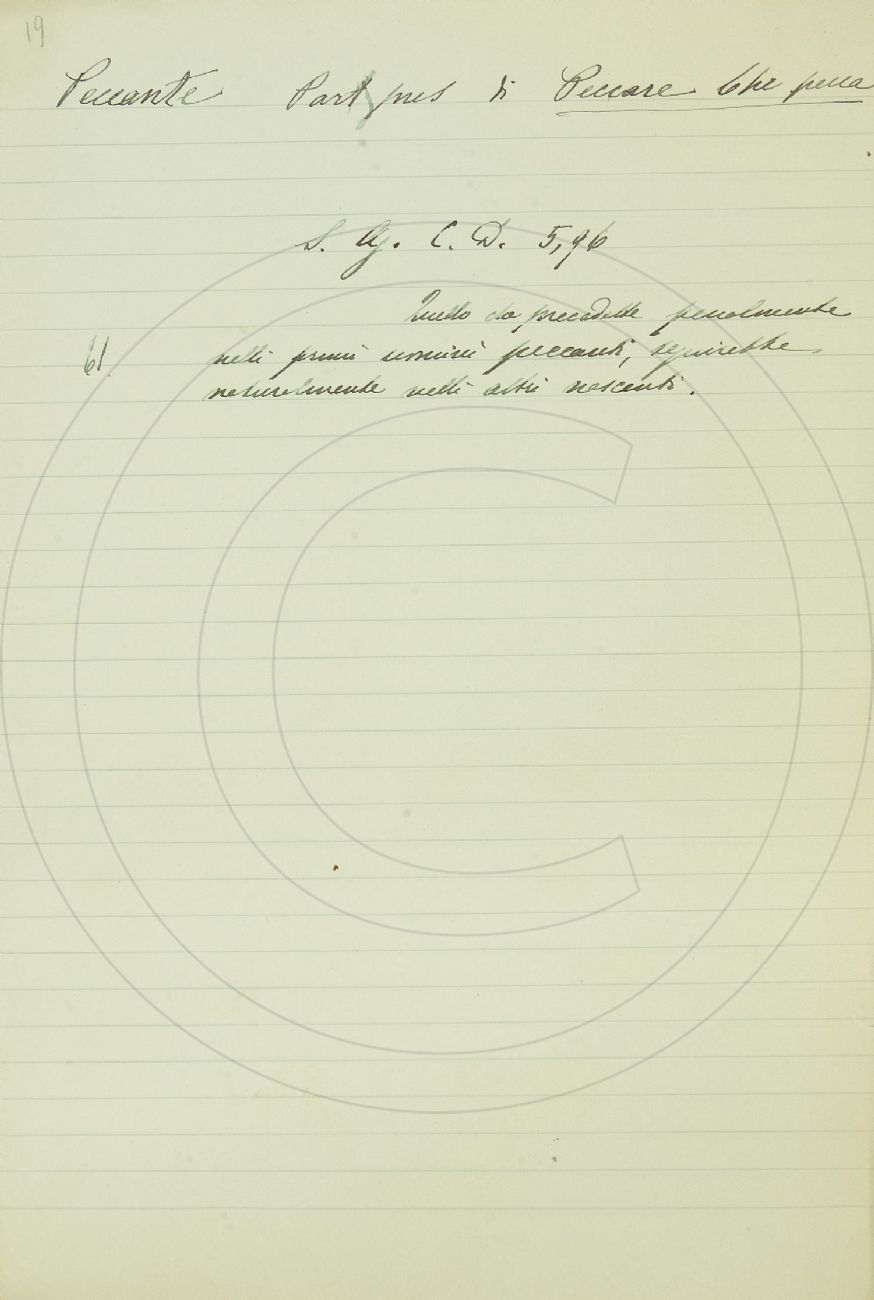 19
Peccante Part pres di Peccare Che pecca
S. Ag. C. D. 5, 96
Quello da precedette penalmente
61 nelli primi uomini peccanti, seguirebbe
naturalmente nelli altri nascenti.